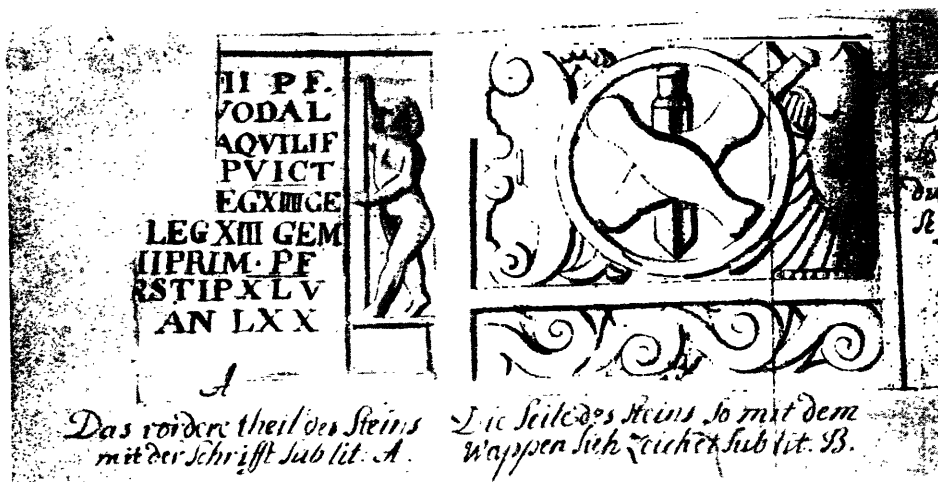 II P F.
VODAL
AQVILIF
PVICT
EGXIIIIGE
LEG XIII GEM
IIPRIM · PF
RSTIPXLV
AN LXX
A
Das vordere theil des Steins
mit der Schrifft sub lit. A.
Die Seite des Steins so mit dem
Wappen sich zeichet sub lit. B.